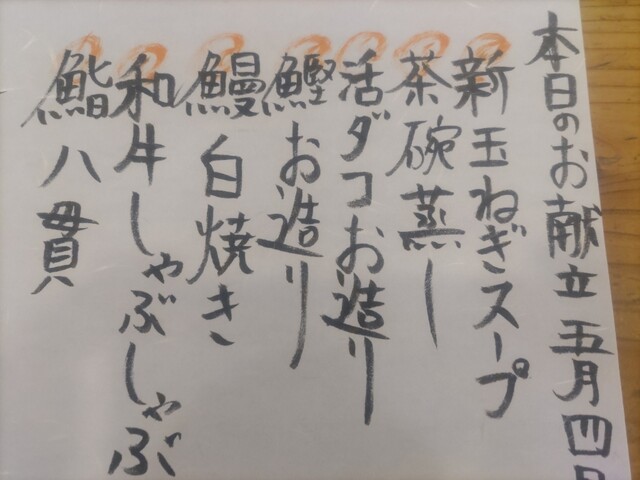 本日のお献立 五月四日
新玉ねぎスープ
茶碗蒸し
活ダコお造り
鰹お造り
鰻白焼き
和牛しゃぶしゃぶ
鮨八貫